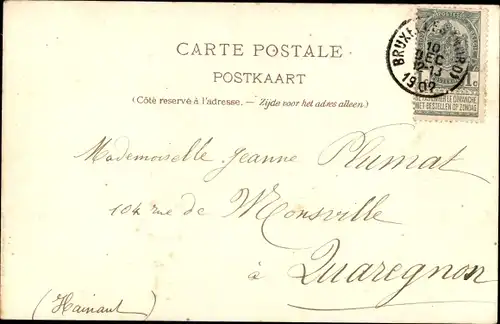 CARTE POSTALE
POSTKAART
(Côté reservé à l'adresse. — Zijde voor het adres alleen.)
BRUXELLES
10
DEC
1902
NE PAS LIVRER LE DIMANCHE
NIET BESTELLEN OP ZONDAG
Mademoiselle Jeanne Plumat
104 rue de Monsville
à Quaregnon
(Hainaut)